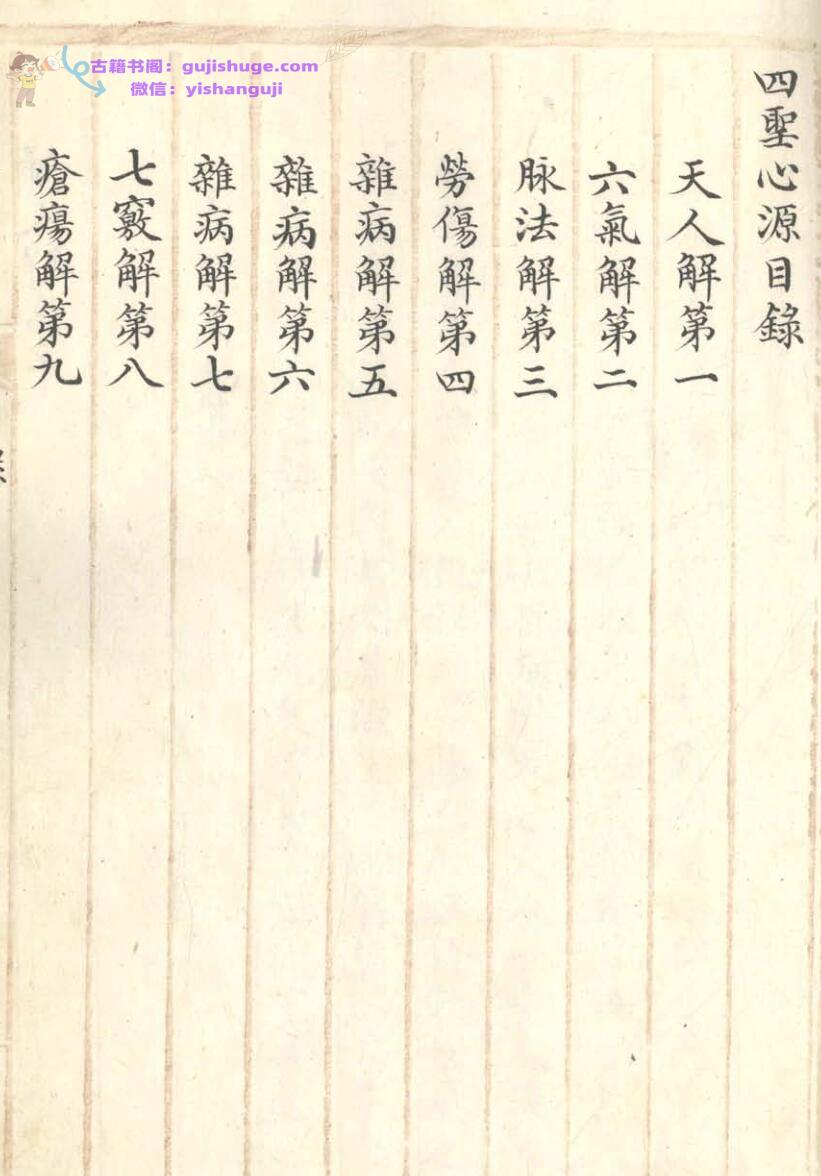 古籍书阁：gujishuge.com
微信：yishanguji
四聖心源目錄
天人解第一
六氣解第二
脉法解第三
勞傷解第四
雜病解第五
雜病解第六
雜病解第七
七竅解第八
瘡瘍解第九